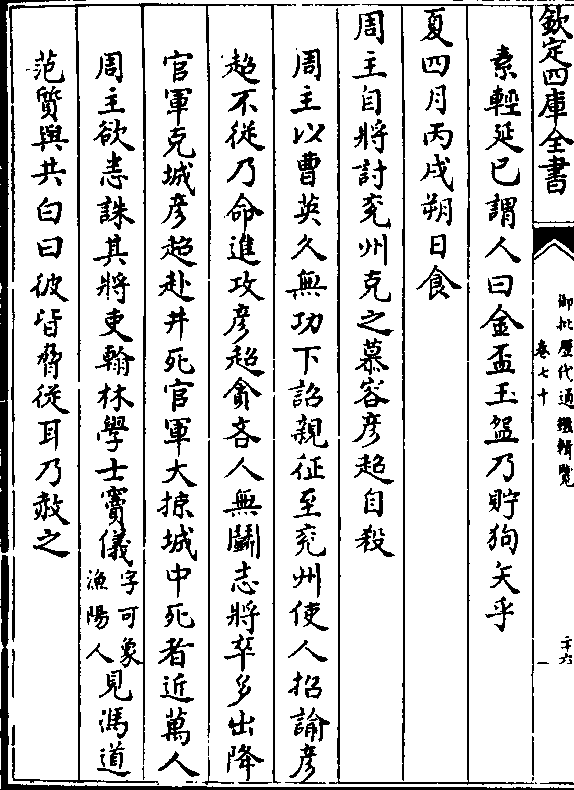 欽定四庫全書
御批歷代通鑑輯覽
卷七十
二十六
素輕延巳謂人曰金盃玉盌乃貯狗矢乎
夏四月丙戌朔日食
周主自將討兖州克之慕容彦超自殺
周主以曹英久無功下詔親征至兖州使人招諭彦
超不從乃命進攻彦超貪吝人無鬬志將卒多出降
官軍克城彦超赴井死官軍大掠城中死者近萬人
周主欲悉誅其將吏翰林學士竇儀字可象漁陽人見馮道
范質與共白曰彼皆脅從耳乃赦之